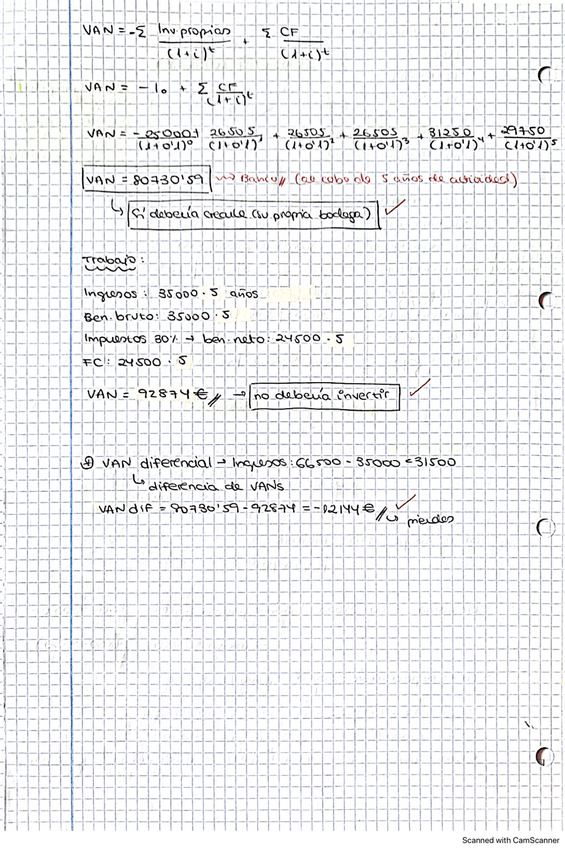 VAN = -Σ Inv. propias / (1+i)^t + Σ CF / (1+i)^t
VAN = -I₀ + Σ CF / (1+i)^t
VAN = -25000 / (1+0'1)^0 + 26505 / (1+0'1)^1 + 26505 / (1+0'1)^2 + 26505 / (1+0'1)^3 + 31250 / (1+0'1)^4 + 29750 / (1+0'1)^5
VAN = 80730'59 → Banco // (al cabo de 5 años de actividad)
↳ Sí debería crearla (su propia bodega) ✓
Trabajo:
Ingresos: 35000 · 5 años
Ben. bruto: 35000 · 5
Impuestos 30% → ben. neto: 24500 · 5
FC: 24500 · 5
VAN = 92874 € // → no debería invertir ✓
VAN diferencial → Ingresos: 66500 - 35000 = 31500
↳ diferencia de VANs
VAN dif = 80730'59 - 92874 = -12144 € // ↳ pierdes ✓
Scanned with CamScanner